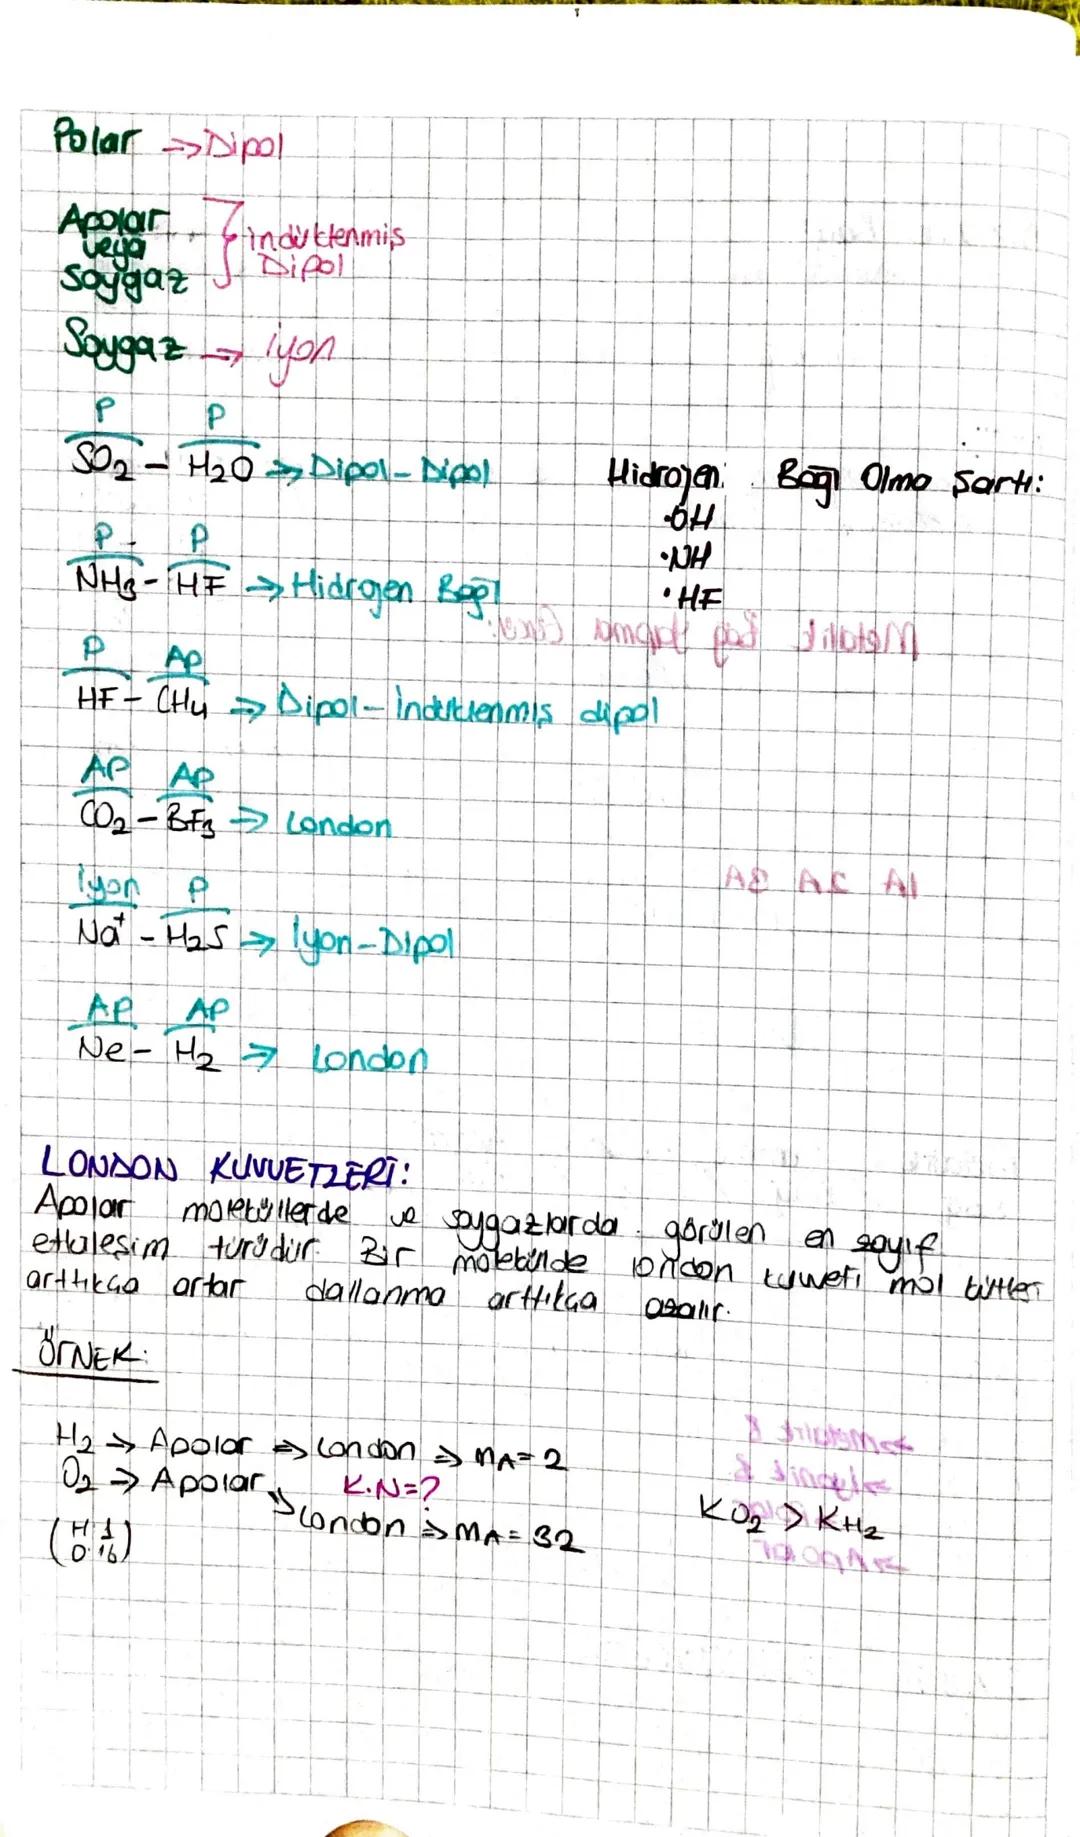 Polar ⇒ Dipol
Apolar
veya
soygaz } indüktenmiş
Dipol
Soygaz → iyon
P P
SO2 - H2O ⇒ Dipol - Dipol
Hidrojen Bağı Olma Şartı:
•OH
•NH
•HF
P P
NH3 - HF ⇒ Hidrojen Bağı
P AP
HF - CH4 ⇒ Dipol - indüklenmiş dipol
AP AP
CO2 - BF3 ⇒ London
iyon P
Na+ - H2S ⇒ iyon - Dipol
AP AP
Ne - H2 ⇒ London
LONDON KUVVETLERİ:
Apolar moleküllerde ve soygazlarda görülen en zayıf
etkileşim türüdür. Bir molekülde london kuvveti mol kütlesi
arttıkça artar dallanma arttıkça azalır.
ÖRNEK:
H2 → Apolar ⇒ London ⇒ MA = 2
O2 → Apolar K.N=?
⇒ London ⇒ MA = 32
KO2 > KH2
(H:1
O:16)